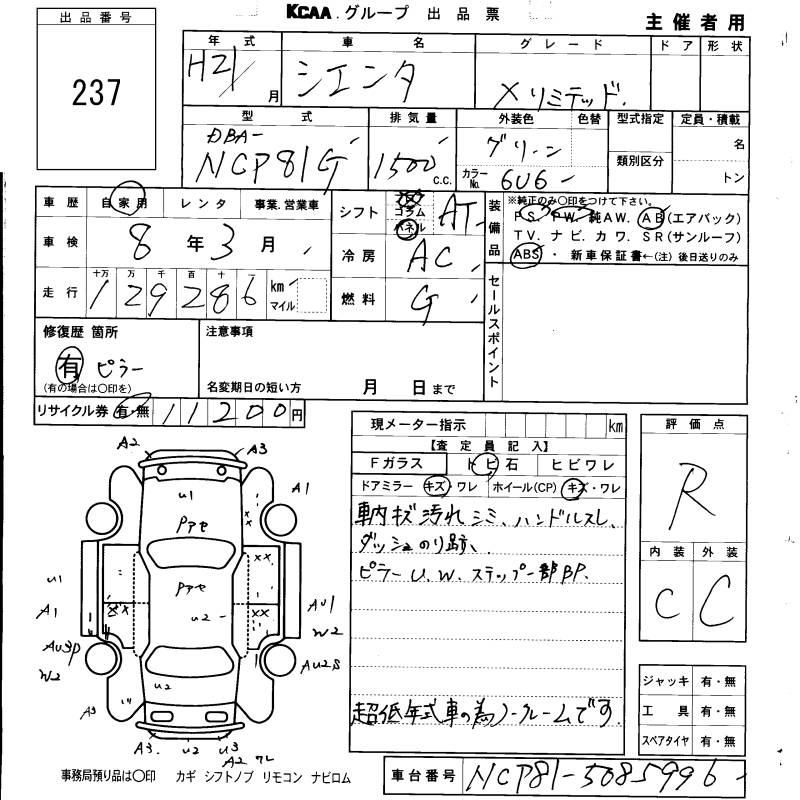 KCAA グループ 出品票
主催者用
出品番号
237
年式 車名 グレード ドア 形状
H21/月 シエンタ Xリミテッド.
型式 排気量 外装色 色替 型式指定 定員・積載
DBA-
NCP81G 1500 c.c. グリーン 名
カラーNo. 6U6 類別区分 トン
車歴 自家用 レンタ 事業.営業車
車検 8年3月
走行 十万 万 千 百 十 一
129286 km マイル
シフト コラム パネル AT
冷房 AC
燃料 G
装備品
※純正のみ○印をつけて下さい。
PS. PW. 純AW. AB(エアバック)
TV. ナビ. カワ. SR(サンルーフ)
ABS・ 新車保証書←(注)後日送りのみ
セールスポイント
修復歴 箇所
有 ピラー
(有の場合は○印を)
注意事項
名変期日の短い方 月 日まで
リサイクル券 有・無 11200円
現メーター指示 km
【査定員記入】
Fガラス トビ石 ヒビワレ
ドアミラー キズ・ワレ ホイール(CP) キズ・ワレ
車内キズ汚れシミ、ハンドルスレ、
ダッシュのり跡、
ピラーU.W.ステップ一部BP.
超低年式車の為ノークレームです.
評価点
R
内装 外装
C C
ジャッキ 有・無
工具 有・無
スペアタイヤ 有・無
A2 A3
U1 A1
Pアセ
Pアセ
U1
A1 U2 AU1
W2
AU3P
W2 AU2S
U2
A3
A3. U2 U3
A2 ワレ
事務局預り品は○印 カギ シフトノブ リモコン ナビロム
車台番号 NCP81-5085996